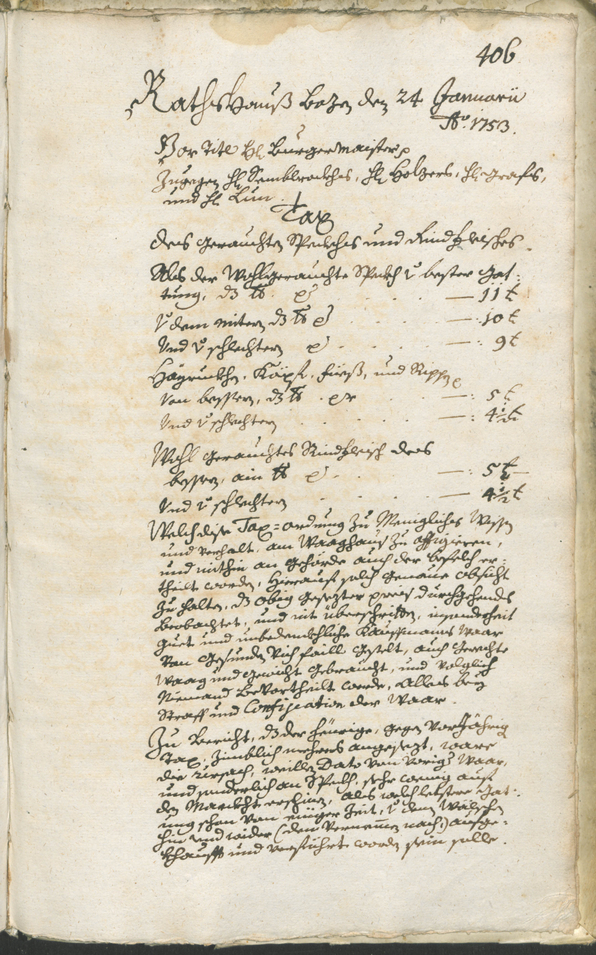 406
Rathshauß Bozen den 24 Januarii
Ao. 1753.
Vor Titl H: Burgermaister
Zugegen H: , H: Holzers, H: Grafs,
und H: 
Tax
des gerauchten Spekhs und Rindfleisches.
Als der Wohlgerauchte Spekh v bester Gat-
tung, dz lb. — 11 t
v dem mitern dz lb — 10 t
Und v schlechtern — 9 t
Köpf, Fieß, und Rippen
von bessern, dz lb. — : 5 t
Und v schlechtern — : 4½ t
Wohl gerauchtes Rindfleisch des
bessern, ain lb — : 5 t
Und v schlechtern — 4½ t
Welch dise Tax-ordnung zu Menigliches Wissen
und Verhalt, am Waaghaus zu affigieren,
und mithin an Gehörde auch der befelch er-
theilt worden, hierauf solch genaue obsicht
zu halten, dz obig gesezter preis durchgehends
beobachtet, und nit überschritten, insonderheit
guet und unbedenkhliche Kaufmanns Waar
von gesunden Vich faill gestelt, auch gerechte
Waag und gewicht gebraucht, und volglich
Niemand bevortheilt werde, Alles bey
Straff und Confiscation der Waar.
Zu Bericht, dz der heurige, gegen vorjährig
Tax, zimblich mehrers angesezt, ware
die ursach, weillen Dato von vorig Waar,
und sonderlich an Spekh, sehr wenig auf
den Markht erschinen, als welch letstere Gat-
ung schon von einiger Zeit, v den Wälschen
hin und wider (dem Vernemmen nach) aufge-
khaufft und verführt worden sein solle.